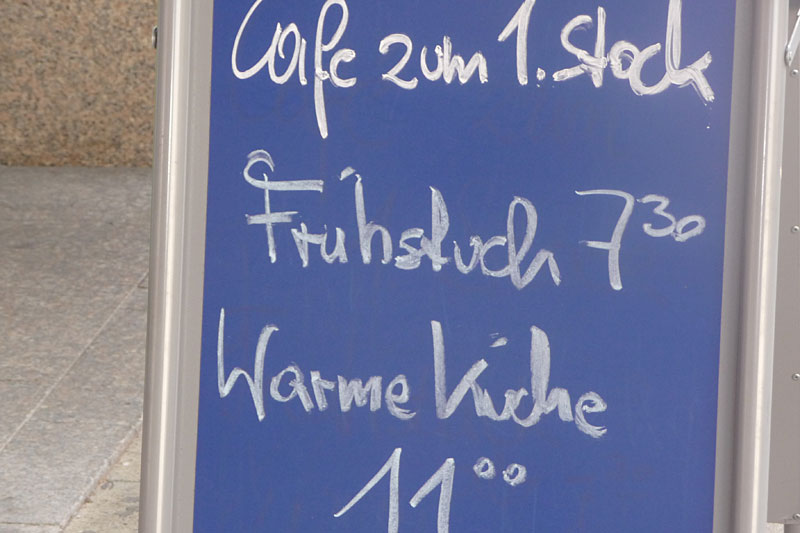 Cafe zum 1. Stock
Frühstück 7³⁰
Warme Küche
11⁰⁰